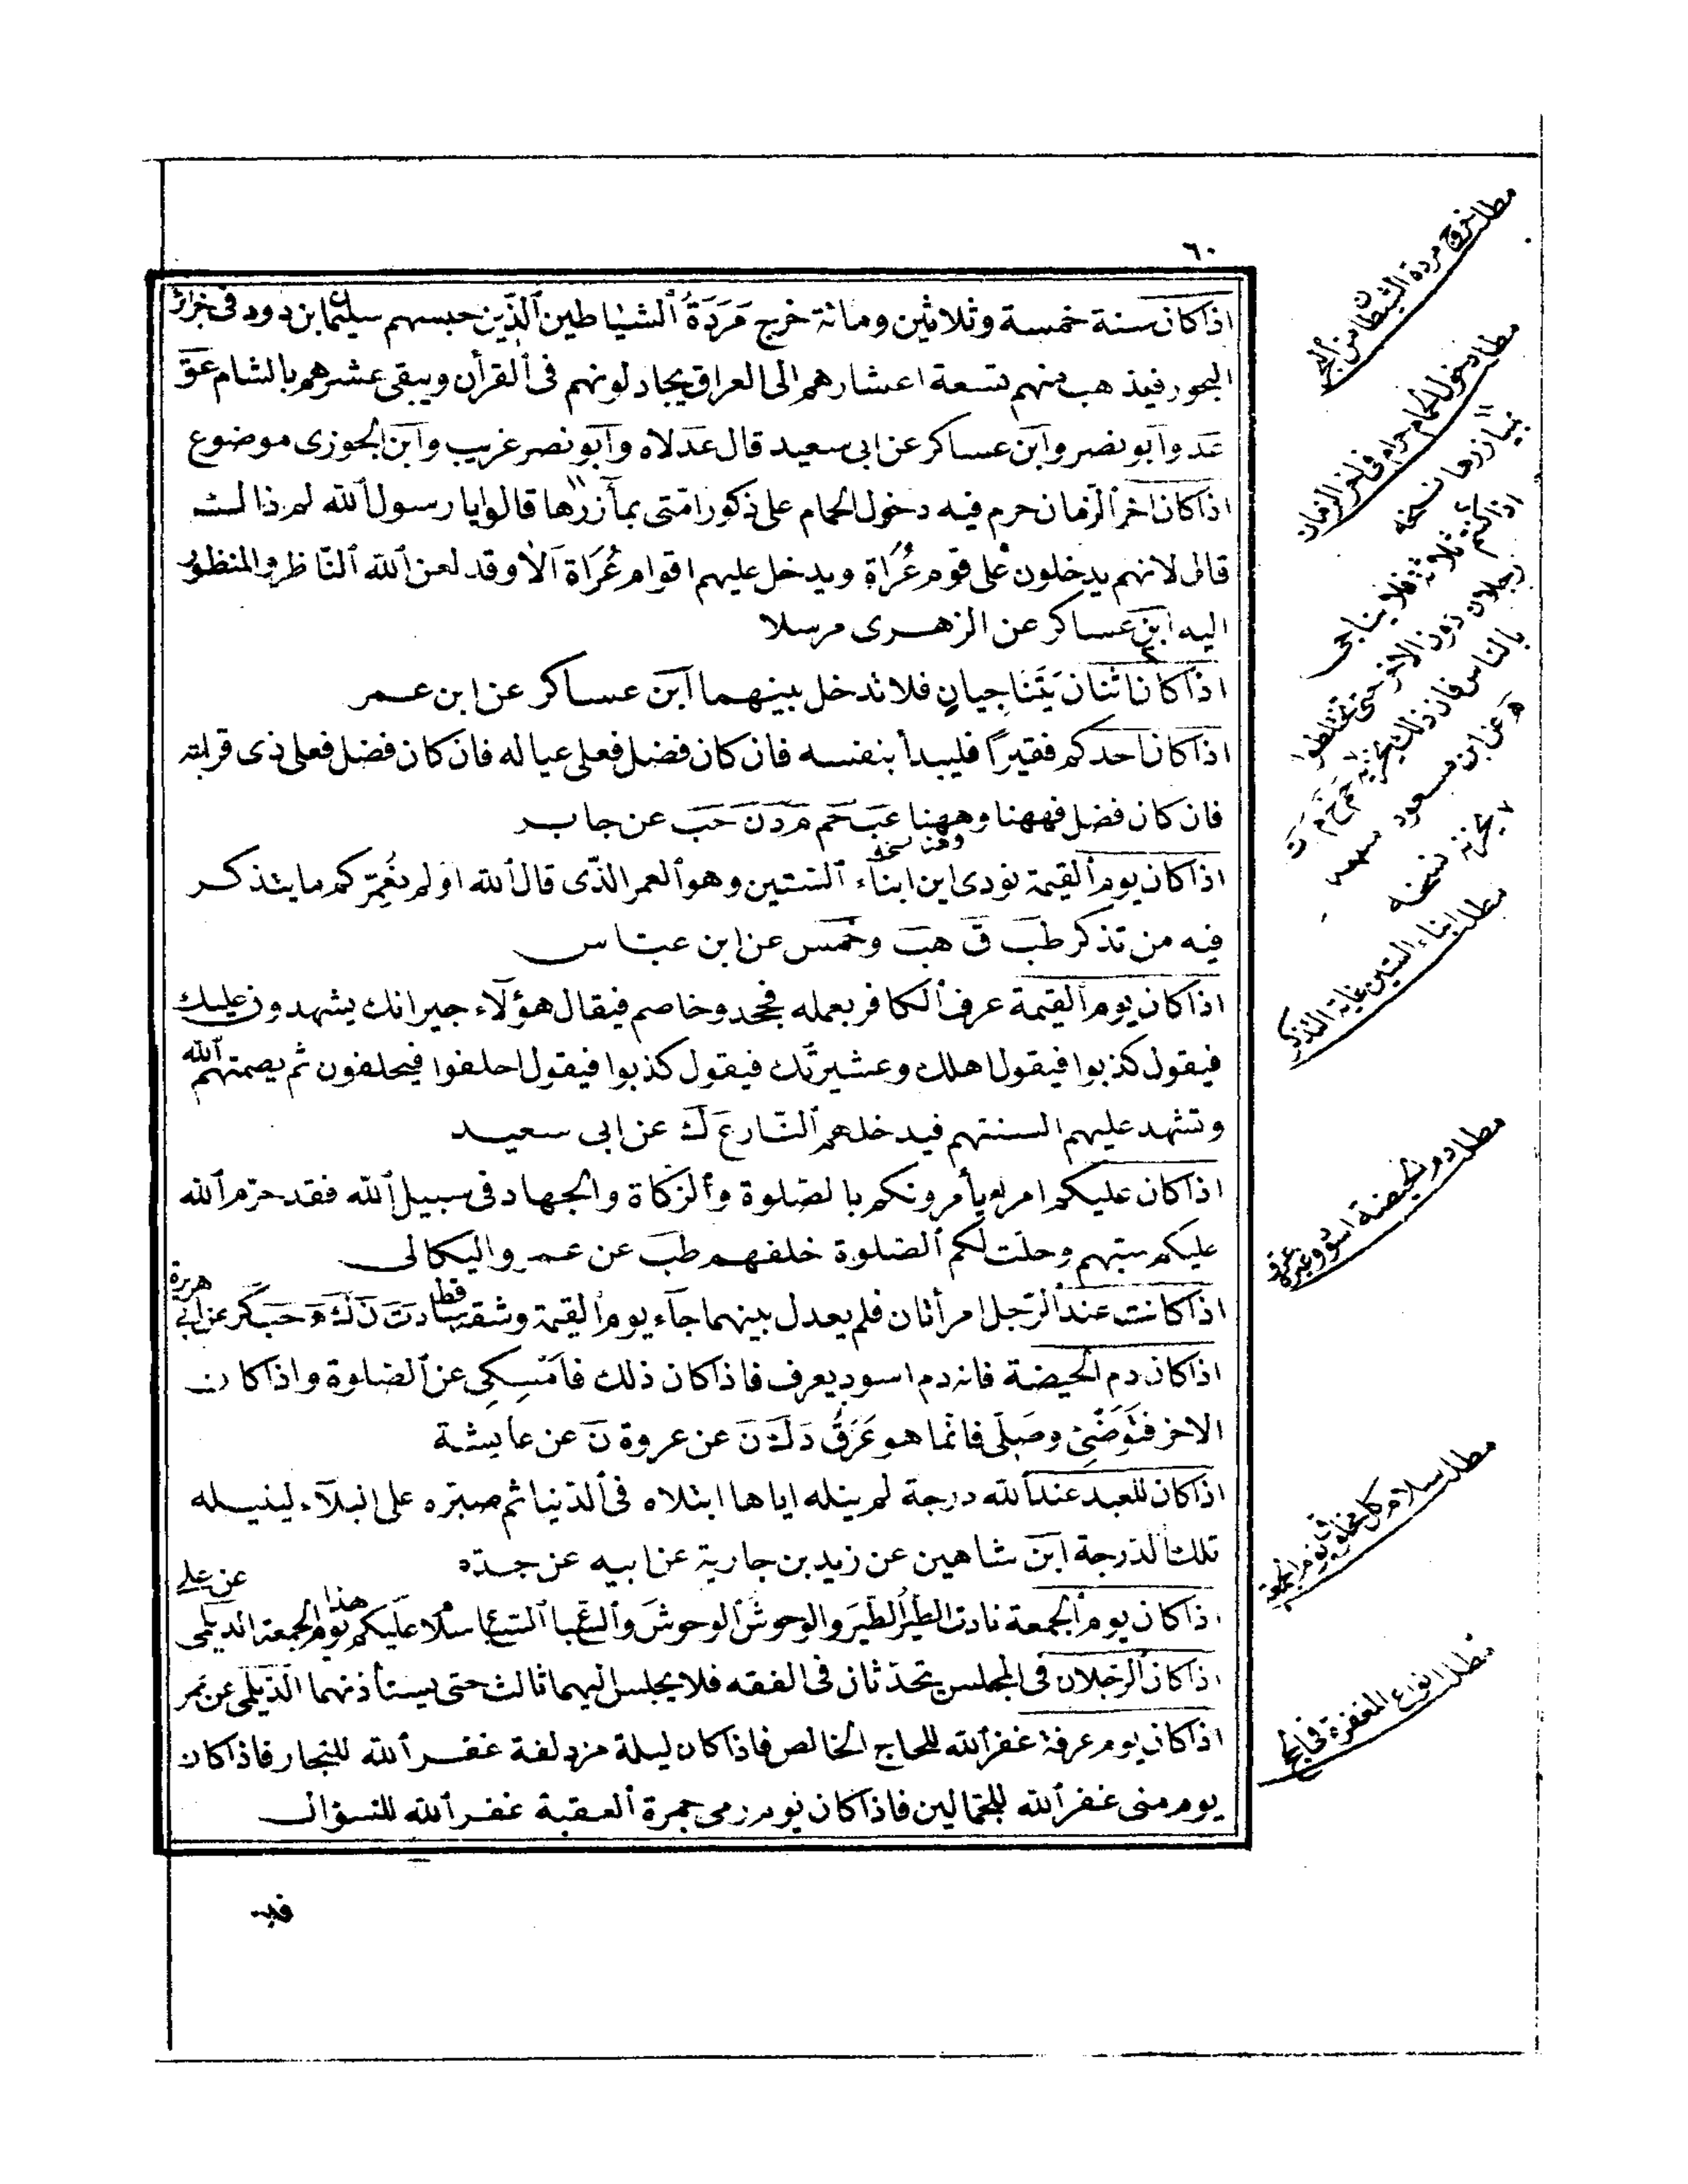 ٦٠
اذا كان سنة خمسة وثلاثين ومائة خرج مَرَدَةُ الشياطين الذين حبسهم سليمان بن دود فى جزائر
البحور فيذهب منهم تسعة اعشارهم الى العراق يجادلونهم فى القرأن ويبقى عشرهم بالشام عق
عد وابو نصر وابن عساكر عن ابى سعيد قال عد لاه وابو نصر غريب وابن الجوزى موضوع
اذا كان اخر الزمان حرم فيه دخول الحمام على ذكور امتى بمأزرها قالوا يا رسول الله لم ذالك
قال لانهم يدخلون على قوم عُرَاة ويدخل عليهم اقوام عُرَاة الا وقد لعن الله الناظر والمنظور
اليه ابن عساكر عن الزهرى مرسلا
اذا كان اثنان يَتَنَاجيان فلا تدخل بينهما ابن عساكر عن ابن عمر
اذا كان احدكم فقيرًا فليبدأ بنفسه فان كان فضل فعلى عياله فان كان فضل فعلى ذى قرابته
فان كان فضل فههنا وههنا عب حم م د ن حب عن جابر
وهنا نسخه
اذا كان يوم القيمة نودى اين ابناء الستين وهو العمر الذى قال الله اولم نُعَمِّركم ما يتذكر
فيه من تذكر طب ق هب وخمس عن ابن عباس
اذا كان يوم القيمة عرف الكافر بعمله فجحد وخاصم فيقال هؤلآء جيرانك يشهدون عليك
فيقول كذبوا فيقول اهلك وعشيرتك فيقول كذبوا فيقول احلفوا فيحلفون ثم يصمتهم الله
وتشهد عليهم السنتهم فيدخلهم النار ع ك عن ابى سعيد
اذا كان عليكم امراء يأمرونكم بالصلوة والزكاة والجهاد فى سبيل الله فقد حرّم الله
عليكم سبّهم وحلت لكم الصلوة خلفهم طب عن عمرو البكالى
اذا كانت عند الرجل امرأتان فلم يعدل بينهما جآء يوم القيمة وشقه ساقط د ت ن ك ه حب كر عن ابى هريرة
اذا كان دم الحيضة فانه دم اسود يعرف فاذا كان ذلك فَاَمْسِكِى عن الصلوة واذا كان
الاخر فتَوَضَّئِى وصَلِّى فانما هو عِرْقٌ د ك ن عن عروة ن عن عايشة
اذا كان للعبد عند الله درجة لم ينله اياها ابتلاه فى الدنيا ثم صبّره على البلآء لينيله
تلك الدرجة ابن شاهين عن زيد بن جارية عن ابيه عن جدّه
اذا كان يوم الجمعة نادت الطيرُ الطيرَ والوحوشُ الوحوشَ والسباعُ السباعَ سلام عليكم هذا يوم الجمعة الديلمى عن على
اذا كان الرجلان فى المجلس يتحدّثان فى الفقه فلا يجلس اليهما ثالث حتى يستأذنهما الديلمى عن
اذا كان يوم عرفة غفر الله للحاج الخالص فاذا كان ليلة مزدلفة غفر الله للتجار فاذا كان
يوم منى غفر الله للجمّالين فاذا كان يوم رمى جمرة العقبة غفر الله للسؤال
مطلب خروج مردة الشيطان من البحر
مطلب دخول الحمام حرام فى اخر الزمان
بميازرها نسخه
اذا كنتم ثلاثة فلا يتناجى
رجلان دون الاخر حتى تختلطوا
بالناس فان ذلك يحزنه حم خ م ت
ه عن ابن مسعود
يحزنه نسخه
مطلب ابناء الستين غاية التذكر
مطلب دم الحيضة اسود وغيره عرق
مطلب سلام كل مخلوق يوم الجمعة
مطلب انواع المغفرة فى الحج